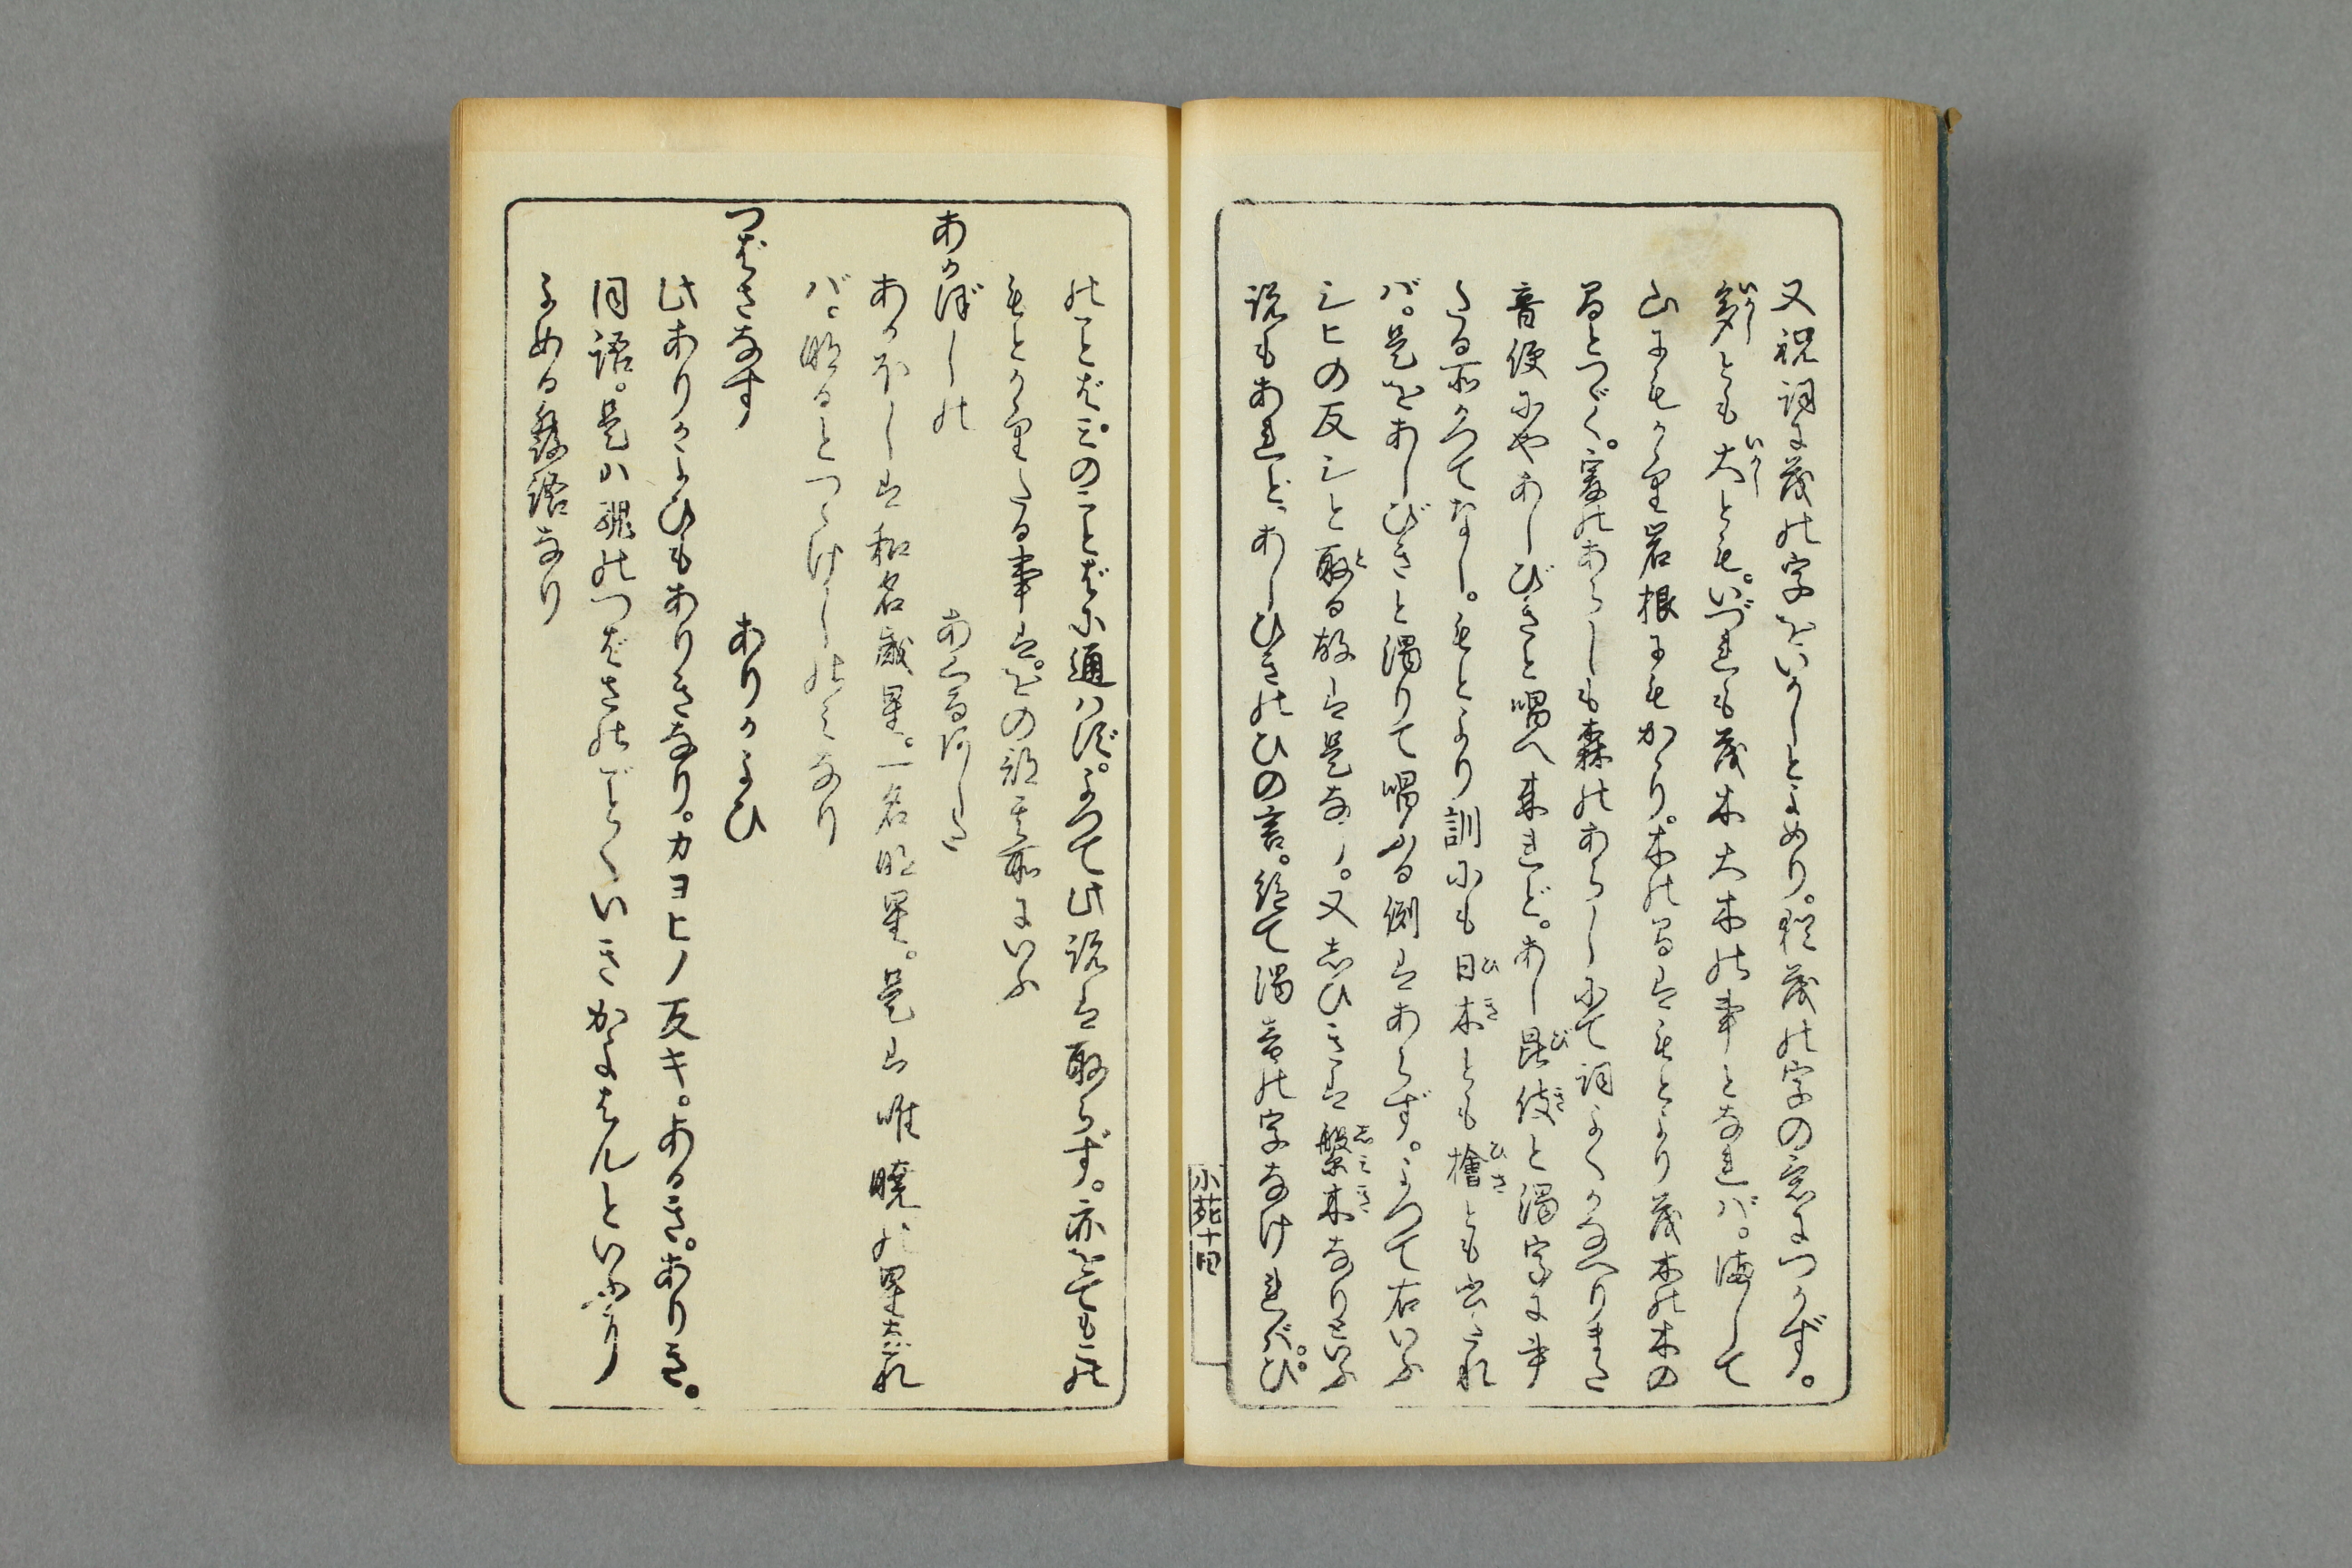 又祝詞に茂の字をいかしとよめり。程茂の字の意につかず。
多とも大とも。いづれも茂木大木の事となれバ。満して
山にもかゝり岩根にもかゝり。木の曷はもとより茂木の木の
曷とつゞく。宴のあらしも森のあらしにて詞よくかなへりまた
音便にやあしびきと唱へ来れど。あし毘伎と濁字に書
たる所かつてなし。もとより訓にも日木とも檜とも出たれ
バ。是をあしびきと濁りて唱ふる例はあらず。よつて右いふ
シヒの反シと取る故は是なり。又志ひきは繁木なりといふ
説もあれど。あしひきのひの言。絶て濁音の字なけれバ。ひ。
小苑十四
のことば。みのことばに通ハず。よつて此説は取らず。亦とても此
もとかゝりたる事は。その部其所にいふ
あかぼしの　あくるあした
あかほしは和名歳星。一名明星。是は唯暁の星なれ
バ。明るとつゞけしのミなり
つばさなす　ありかよひ
此ありかよひもありきなり。カヨヒノ反キ。あるき。ありき。
同語。是ハ飛のつばさのごとくいきかよはんといふより
よめる発語なり